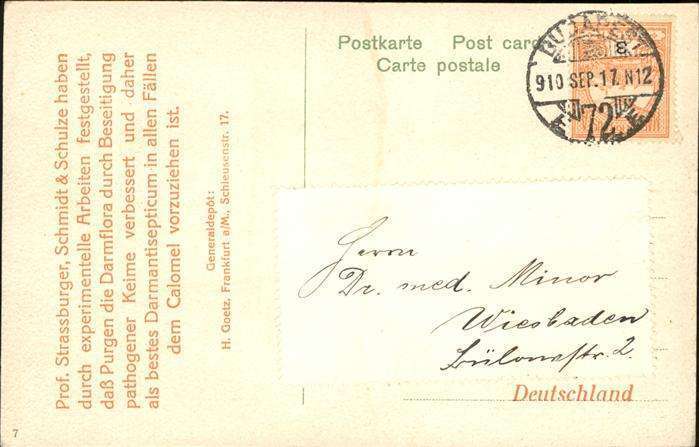 Prof. Strassburger, Schmidt & Schulze haben
durch experimentelle Arbeiten festgestellt,
daß Purgen die Darmflora durch Beseitigung
pathogener Keime verbessert und daher
als bestes Darmantisepticum in allen Fällen
dem Calomel vorzuziehen ist.
Generaldepôt:
H. Goetz, Frankfurt a/M., Schleusenstr. 17.
Postkarte Post card
Carte postale
BUDAPEST
910 SEP. 17. N12
72
3
Herrn
Dr. med. Minor
Wiesbaden
Bülowstr. 2.
Deutschland
7